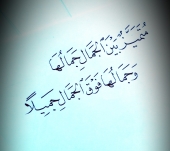 مُتَمَيِّزٌ بَيْنَ الْجَمَالِ جَمَالُهَا
وَجَمَالُهَا فَوْقَ الْجَمَالِ جَمِيلاً